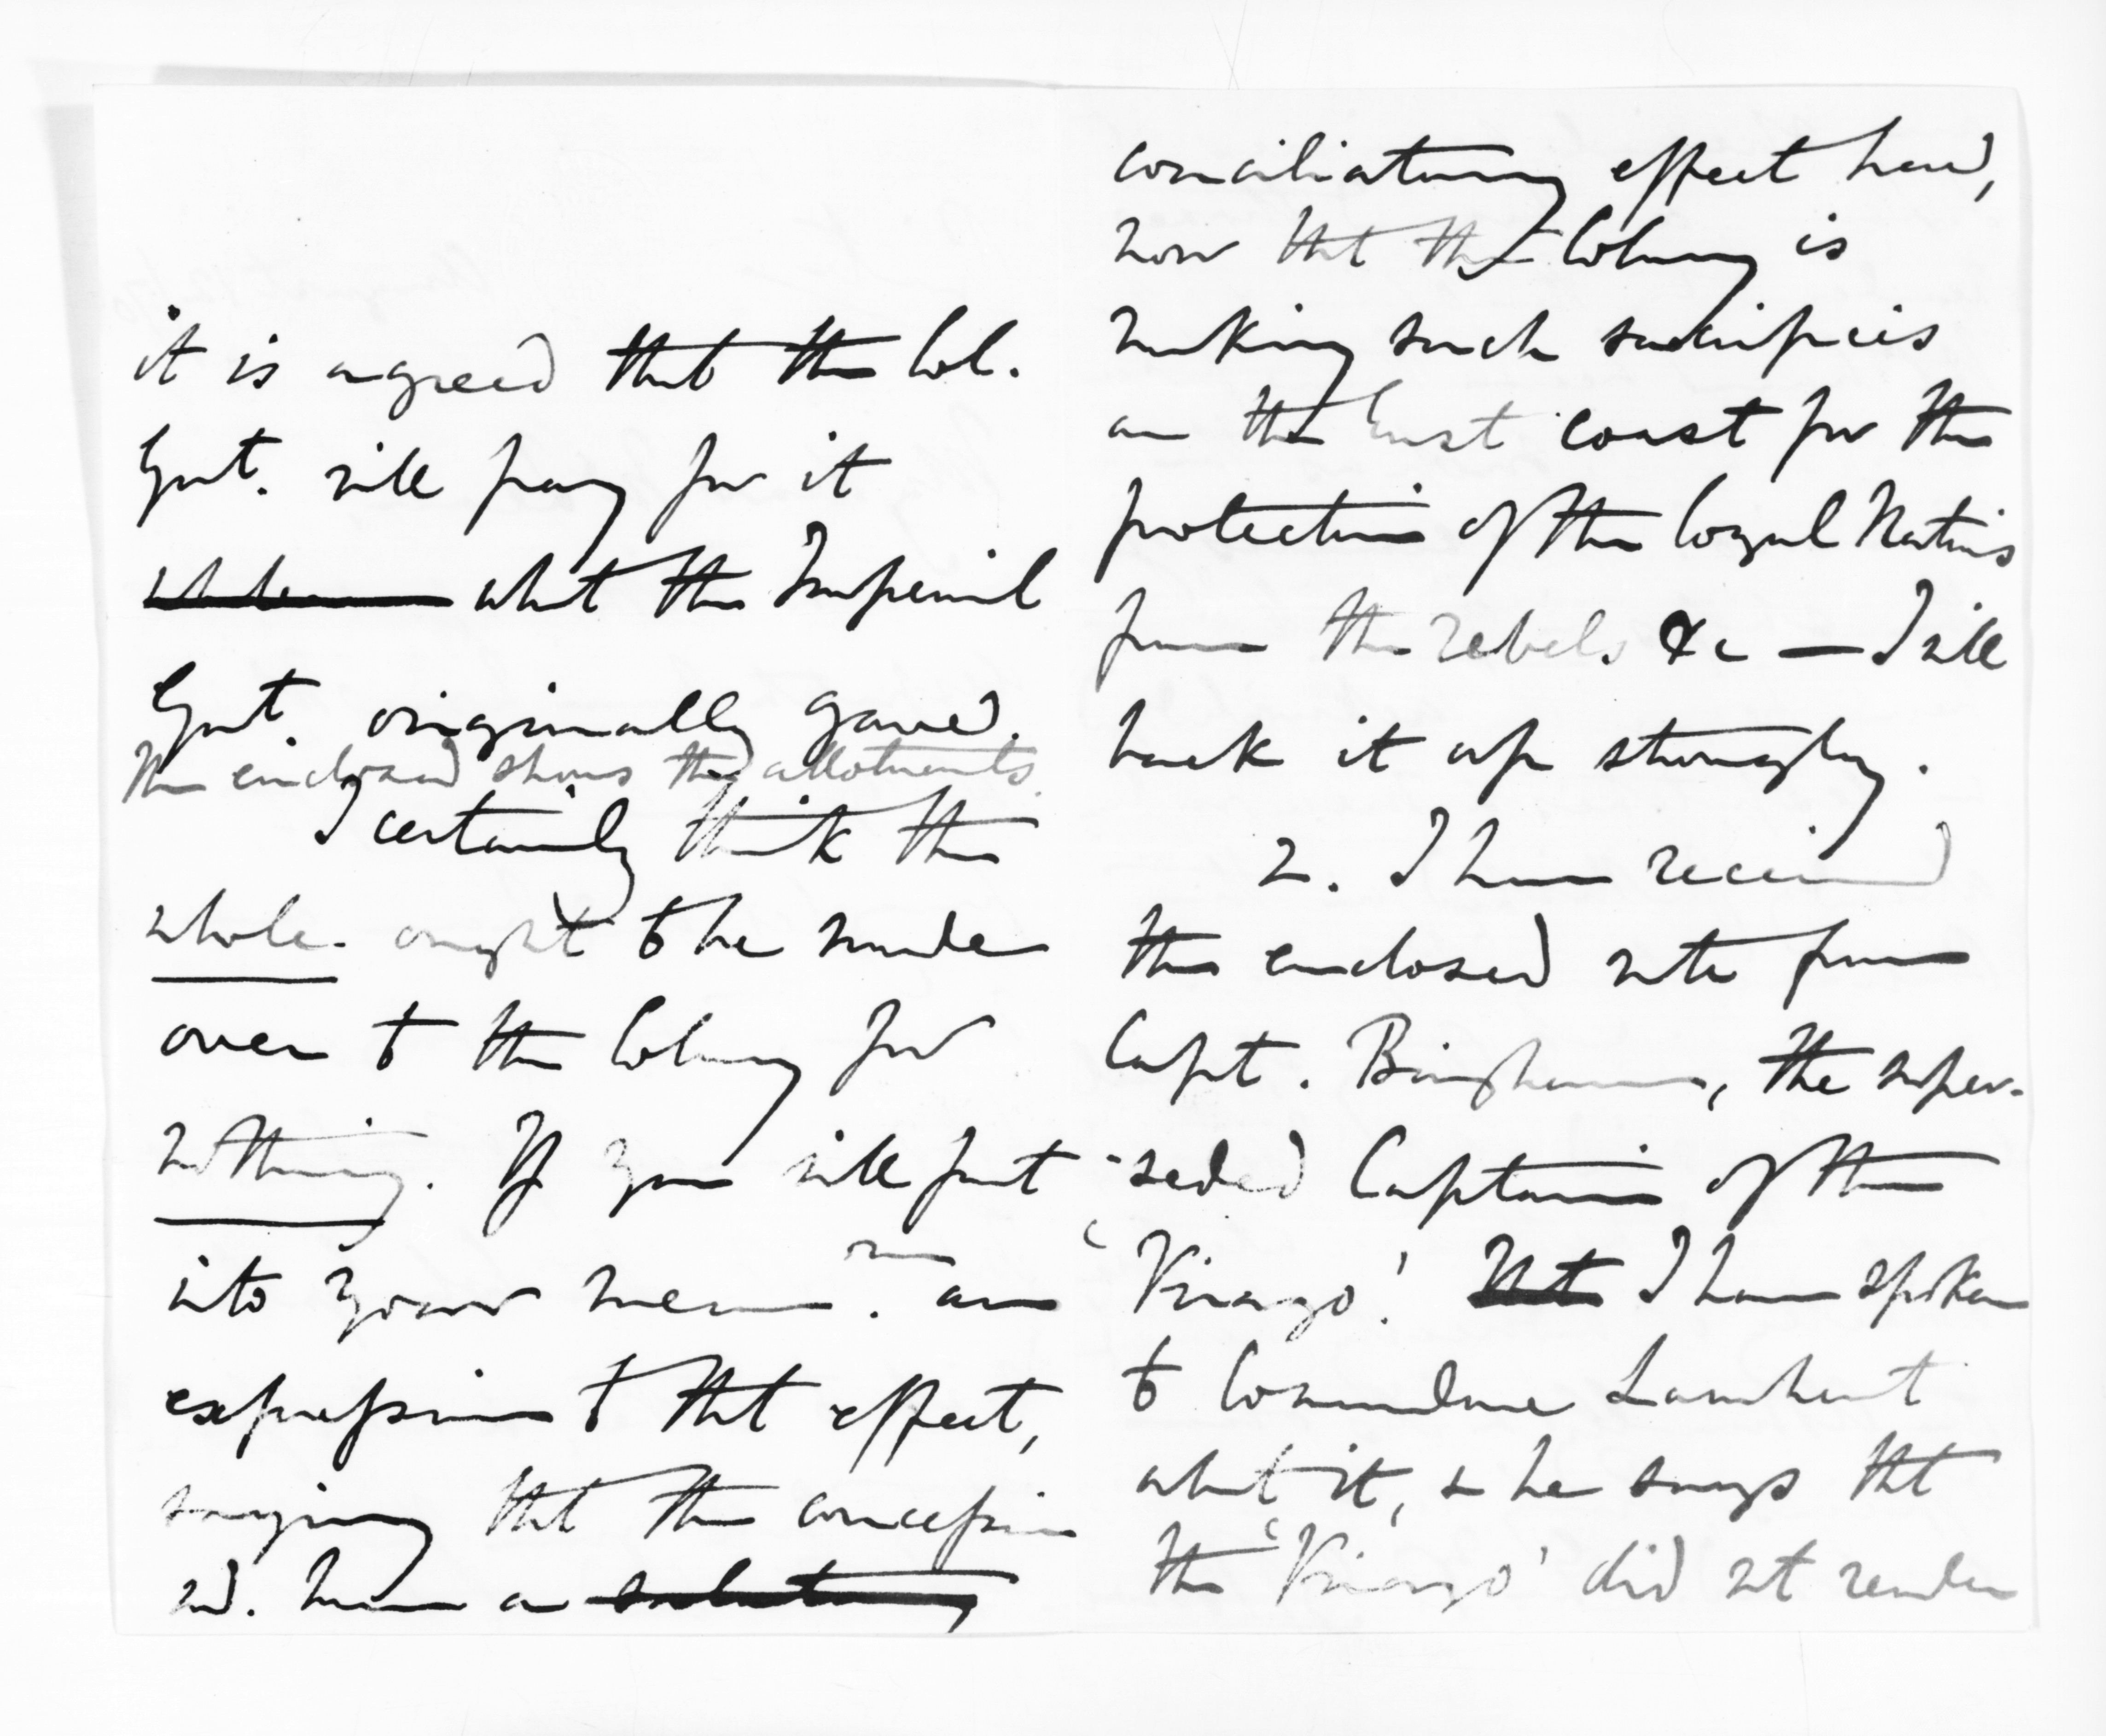 it is agreed that the Col.
Govt. will pay for it
what the Imperial
Govt. originally gave.
The enclosed shows the allotments.
I certainly think the
whole ought to be made
over to the Colony for
nothing. If you will put
into your memm. an
expression to that effect,
saying that the concession
wd. have a salutary
conciliatory effect here,
now that the Colony is
making such sacrifices
on the East coast for the
protection of the loyal Natives
from the rebels &c — I will
back it up strongly.
2. I have received
the enclosed note from
Capt. Bingham, the super-
-seded Captain of the
'Virago'. Not I have spoken
to Commodore Lambert
about it, & he says that
the 'Virago' did not render